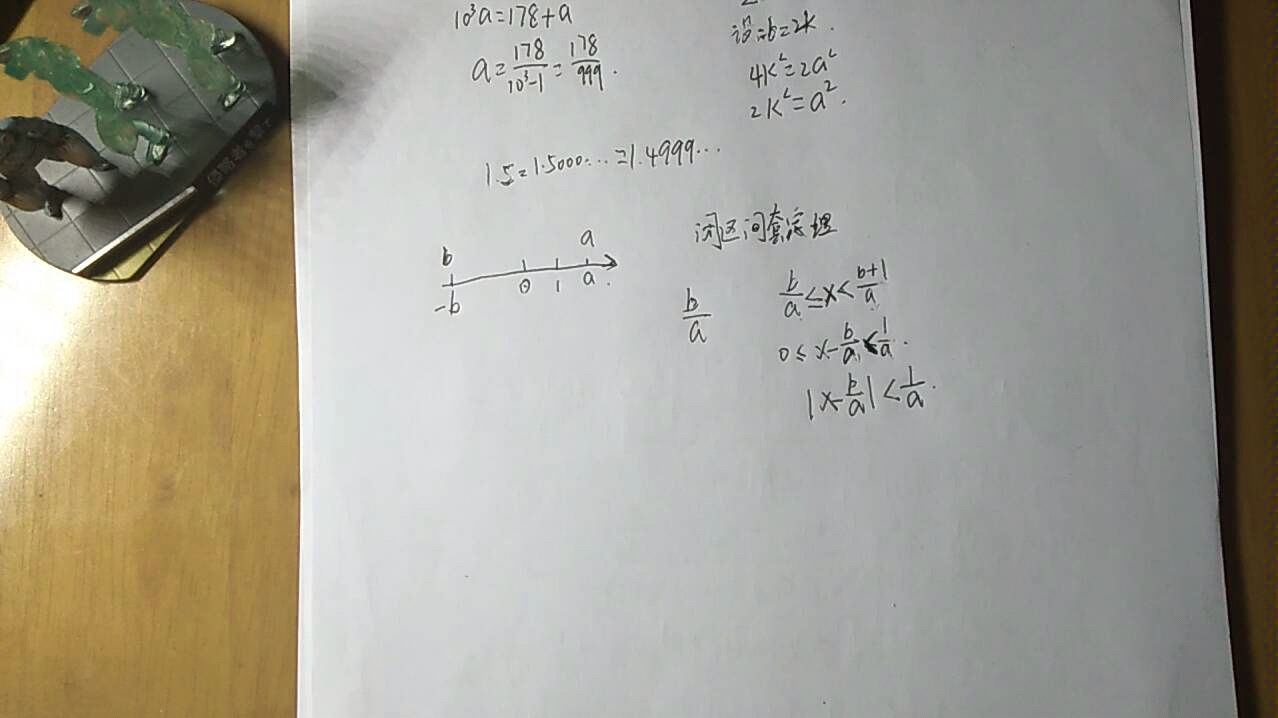 10³a=178+a
a=178/(10³-1)=178/999.
设b=2k.
4k²=2a²
2k²=a².
1.5=1.5000...=1.4999...
b a
-b 0 1 a.
闭区间套定理
b/a
b/a≤x<(b+1)/a
0≤x-b/a<1/a.
|x-b/a|<1/a.